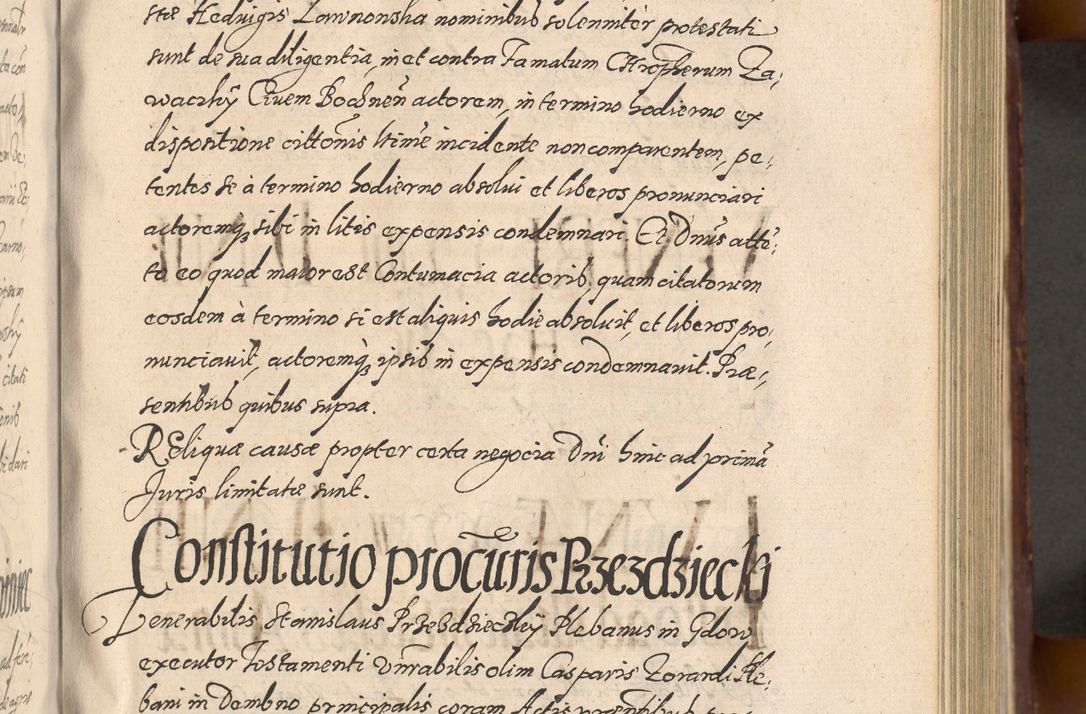 stæ Hedvigis Lawnonska nominibus solenniter protestati
sunt de sua diligentia, in et contra famatum Chrõpherum Za,
waczky Civem Bochnen̄ actorem, in termino hodierno ex
dispositione citton̄is ltime incidente non comparentem, pe,
tentes se à termino hodierno absolvi et liberos pronunciari
actoremq, sibi in litis expensis condemnari. Et Dnūs atte,
to eo quod maior est Contumacia actorib, quam citatorum
eosdem à termino si est aliquis hodie absolvit, et liberos pro,
nunciavit, actoremq, ipsib in expensis condemnavit. Præ,
sentibus quibus supra.
Reliquæ causæ propter certa negocia Dni hinc ad primā
Juris limitatæ sunt.
Constitutio procūris Przezdziecki
Venerabilis Stanislaus Przezdzieczky Plebanus in Gdow
executor Testamenti Vnrabilis olim Casparis Zorardi Ple,
bani in Dembno principalis coram Actis